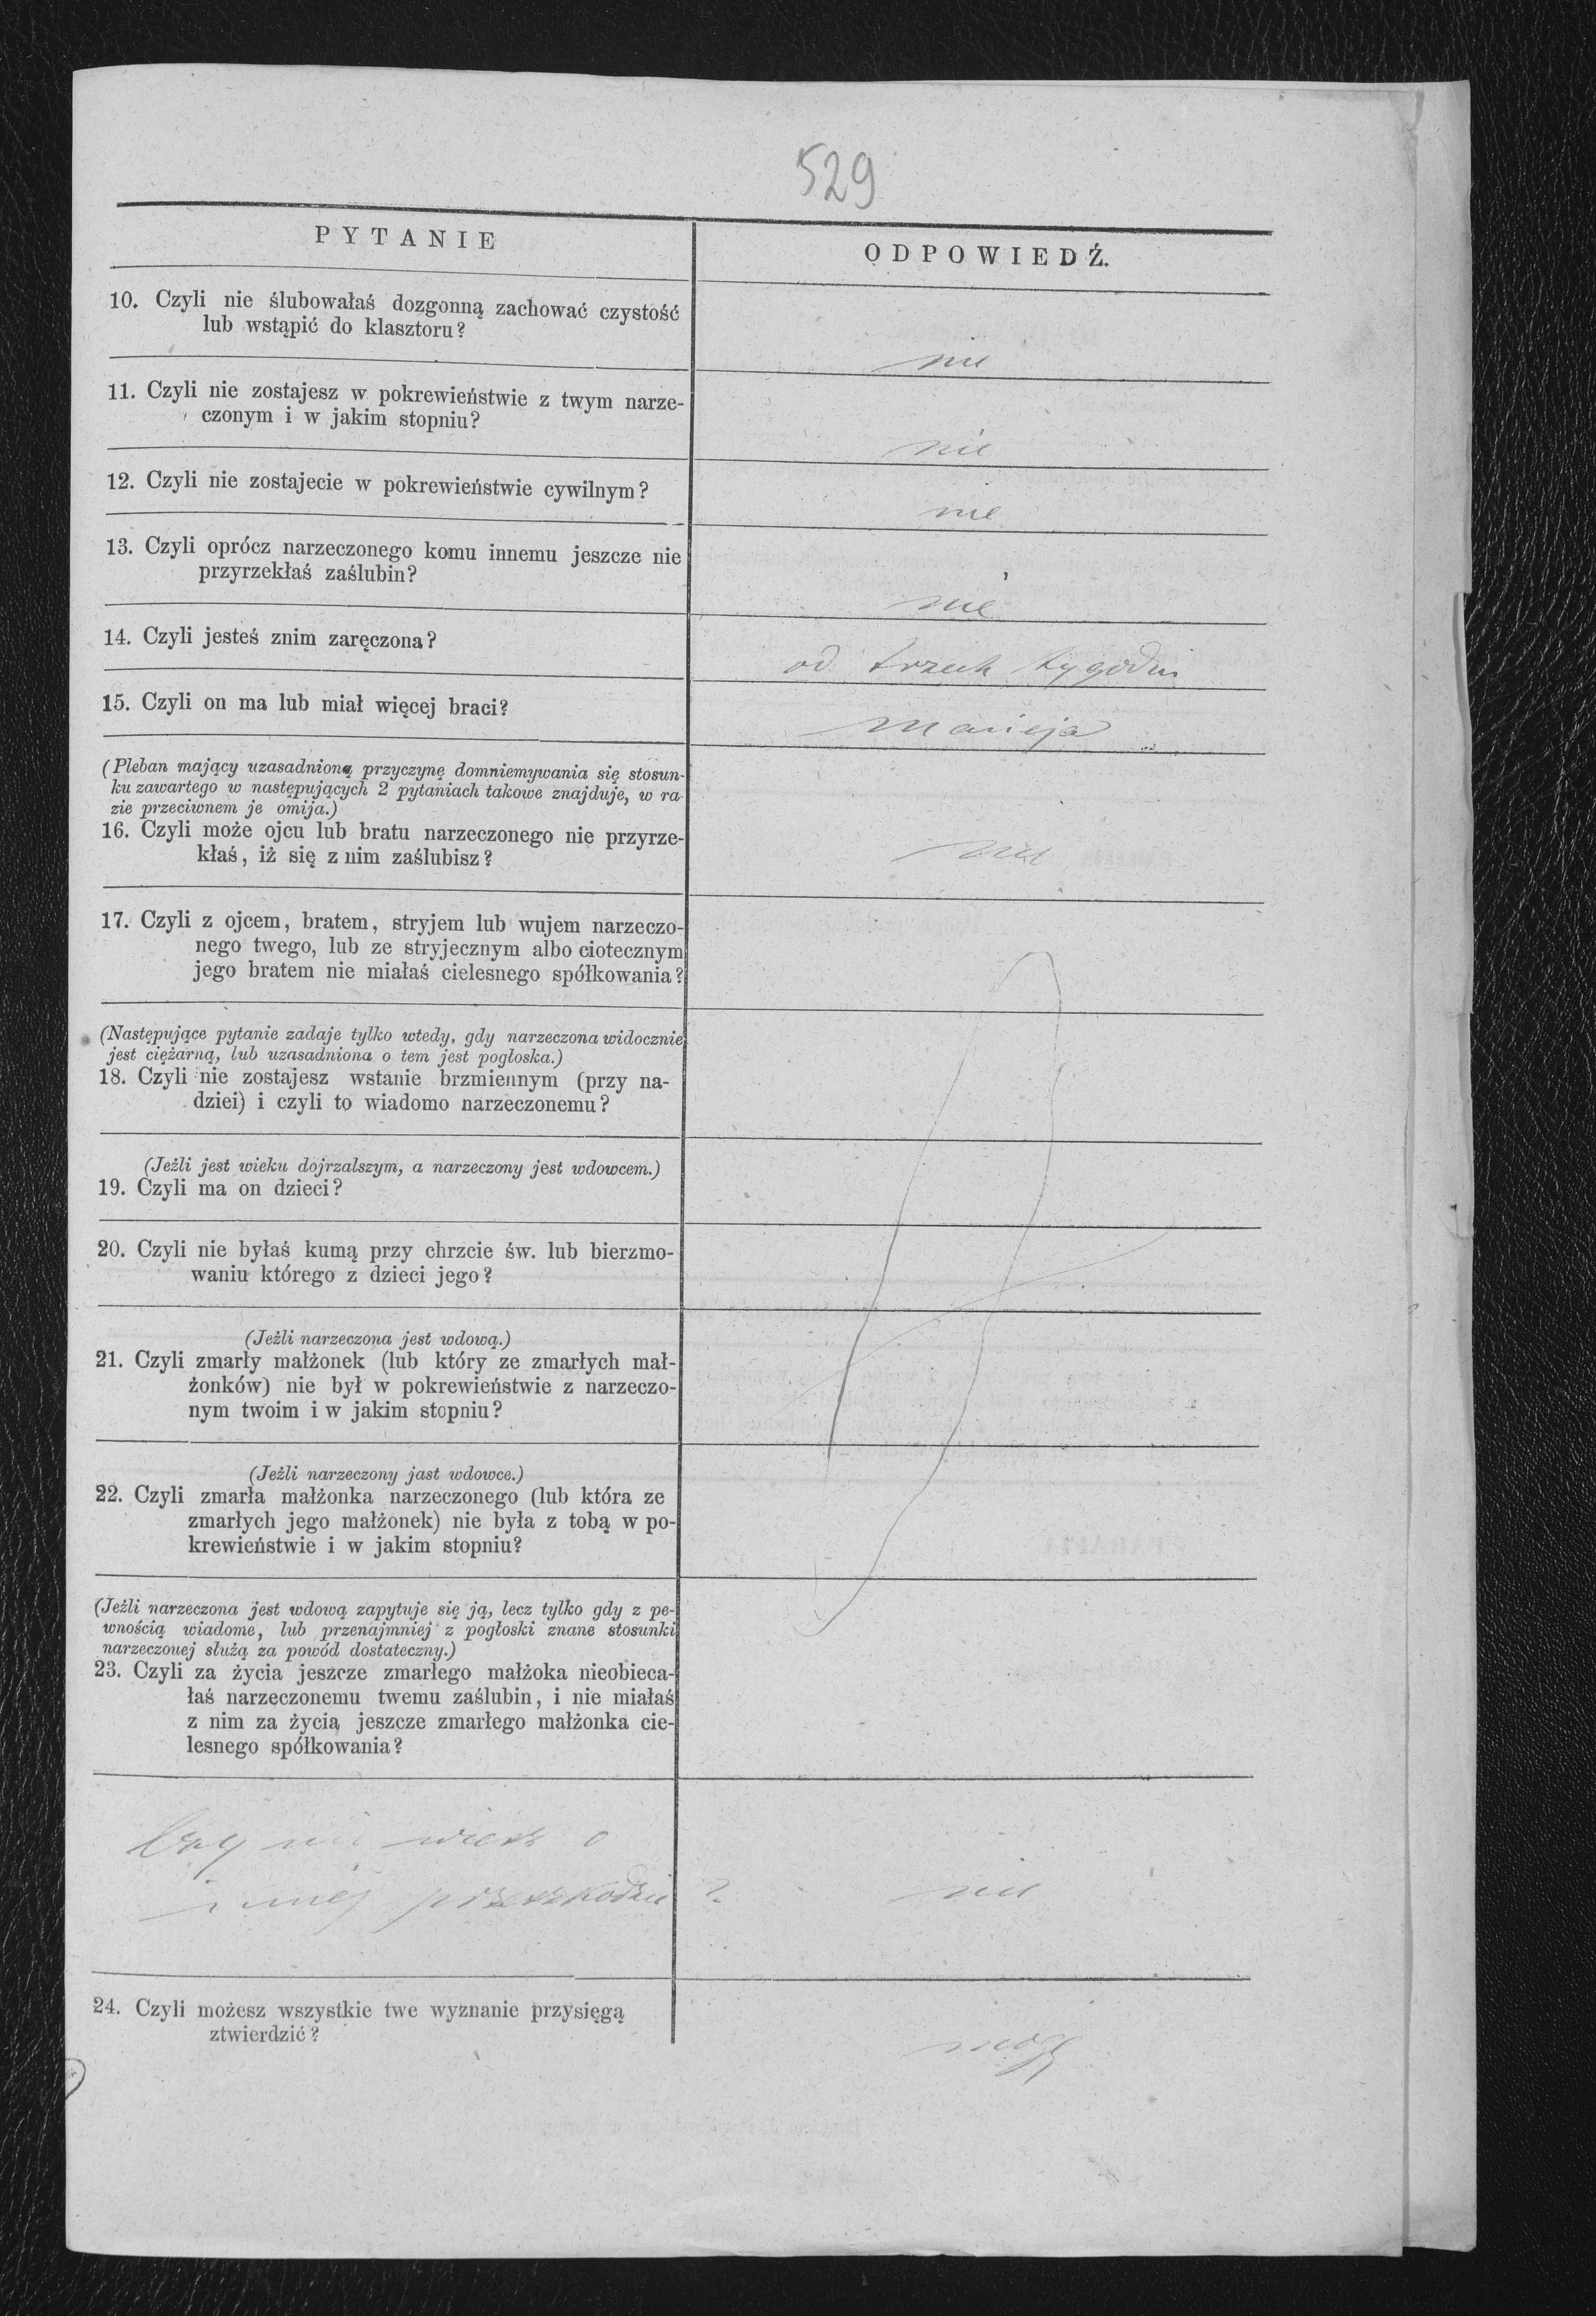 529
PYTANIE
ODPOWIEDŹ.
10. Czyli nie ślubowałaś dozgonną zachować czystość
lub wstąpić do klasztoru?
nie
11. Czyli nie zostajesz w pokrewieństwie z twym narze-
czonym i w jakim stopniu?
nie
12. Czyli nie zostajecie w pokrewieństwie cywilnym?
nie
13. Czyli oprócz narzeczonego komu innemu jeszcze nie
przyrzekłaś zaślubin?
nie
14. Czyli jesteś znim zaręczona?
od trzech tygodni
15. Czyli on ma lub miał więcej braci?
(Pleban mający uzasadnioną przyczynę domniemywania się stosun-
ku zawartego w następujących 2 pytaniach takowe znajduje, w ra-
zie przeciwnem je omija.)
16. Czyli może ojcu lub bratu narzeczonego nie przyrze-
kłaś, iż się z nim zaślubisz?
nie
17. Czyli z ojcem, bratem, stryjem lub wujem narzeczo-
nego twego, lub ze stryjecznym albo ciotecznym
jego bratem nie miałaś cielesnego spółkowania?
(Następujące pytanie zadaje tylko wtedy, gdy narzeczona widocznie
jest ciężarną, lub uzasadniona o tem jest pogłoska.)
18. Czyli nie zostajesz wstanie brzmiennym (przy na-
dziei) i czyli to wiadomo narzeczonemu?
(Jeźli jest wieku dojrzalszym, a narzeczony jest wdowcem.)
19. Czyli ma on dzieci?
20. Czyli nie byłaś kumą przy chrzcie św. lub bierzmo-
waniu którego z dzieci jego?
(Jeźli narzeczona jest wdową.)
21. Czyli zmarły małżonek (lub który ze zmarłych mał-
żonków) nie był w pokrewieństwie z narzeczo-
nym twoim i w jakim stopniu?
(Jeźli narzeczony jast wdowce.)
22. Czyli zmarła małżonka narzeczonego (lub która ze
zmarłych jego małżonek) nie była z tobą w po-
krewieństwie i w jakim stopniu?
(Jeźli narzeczona jest wdową zapytuje się ją, lecz tylko gdy z pe-
wnością wiadome, lub przenajmniej z pogłoski znane stosunki
narzeczonej służą za powód dostateczny.)
23. Czyli za życia jeszcze zmarłego małżoka nieobieca-
łaś narzeczonemu twemu zaślubin, i nie miałaś
z nim za życia jeszcze zmarłego małżonka cie-
lesnego spółkowania?
Czy nie wiesz o
innej przeszkodzie ?
nie
24. Czyli możesz wszystkie twe wyznanie przysięgą
ztwierdzić?
mogę